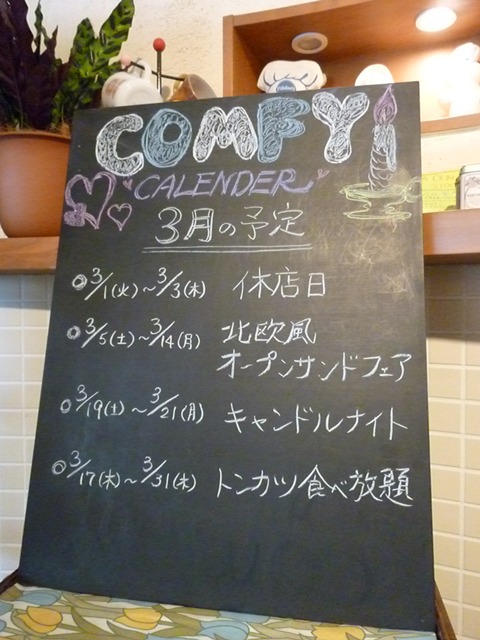 COMFY
CALENDER
3月の予定
◎3/1(火)~3/3(木) 休店日
◎3/5(土)~3/14(月) 北欧風
オープンサンドフェア
◎3/19(土)~3/21(月) キャンドルナイト
◎3/17(木)~3/31(木) トンカツ食べ放題